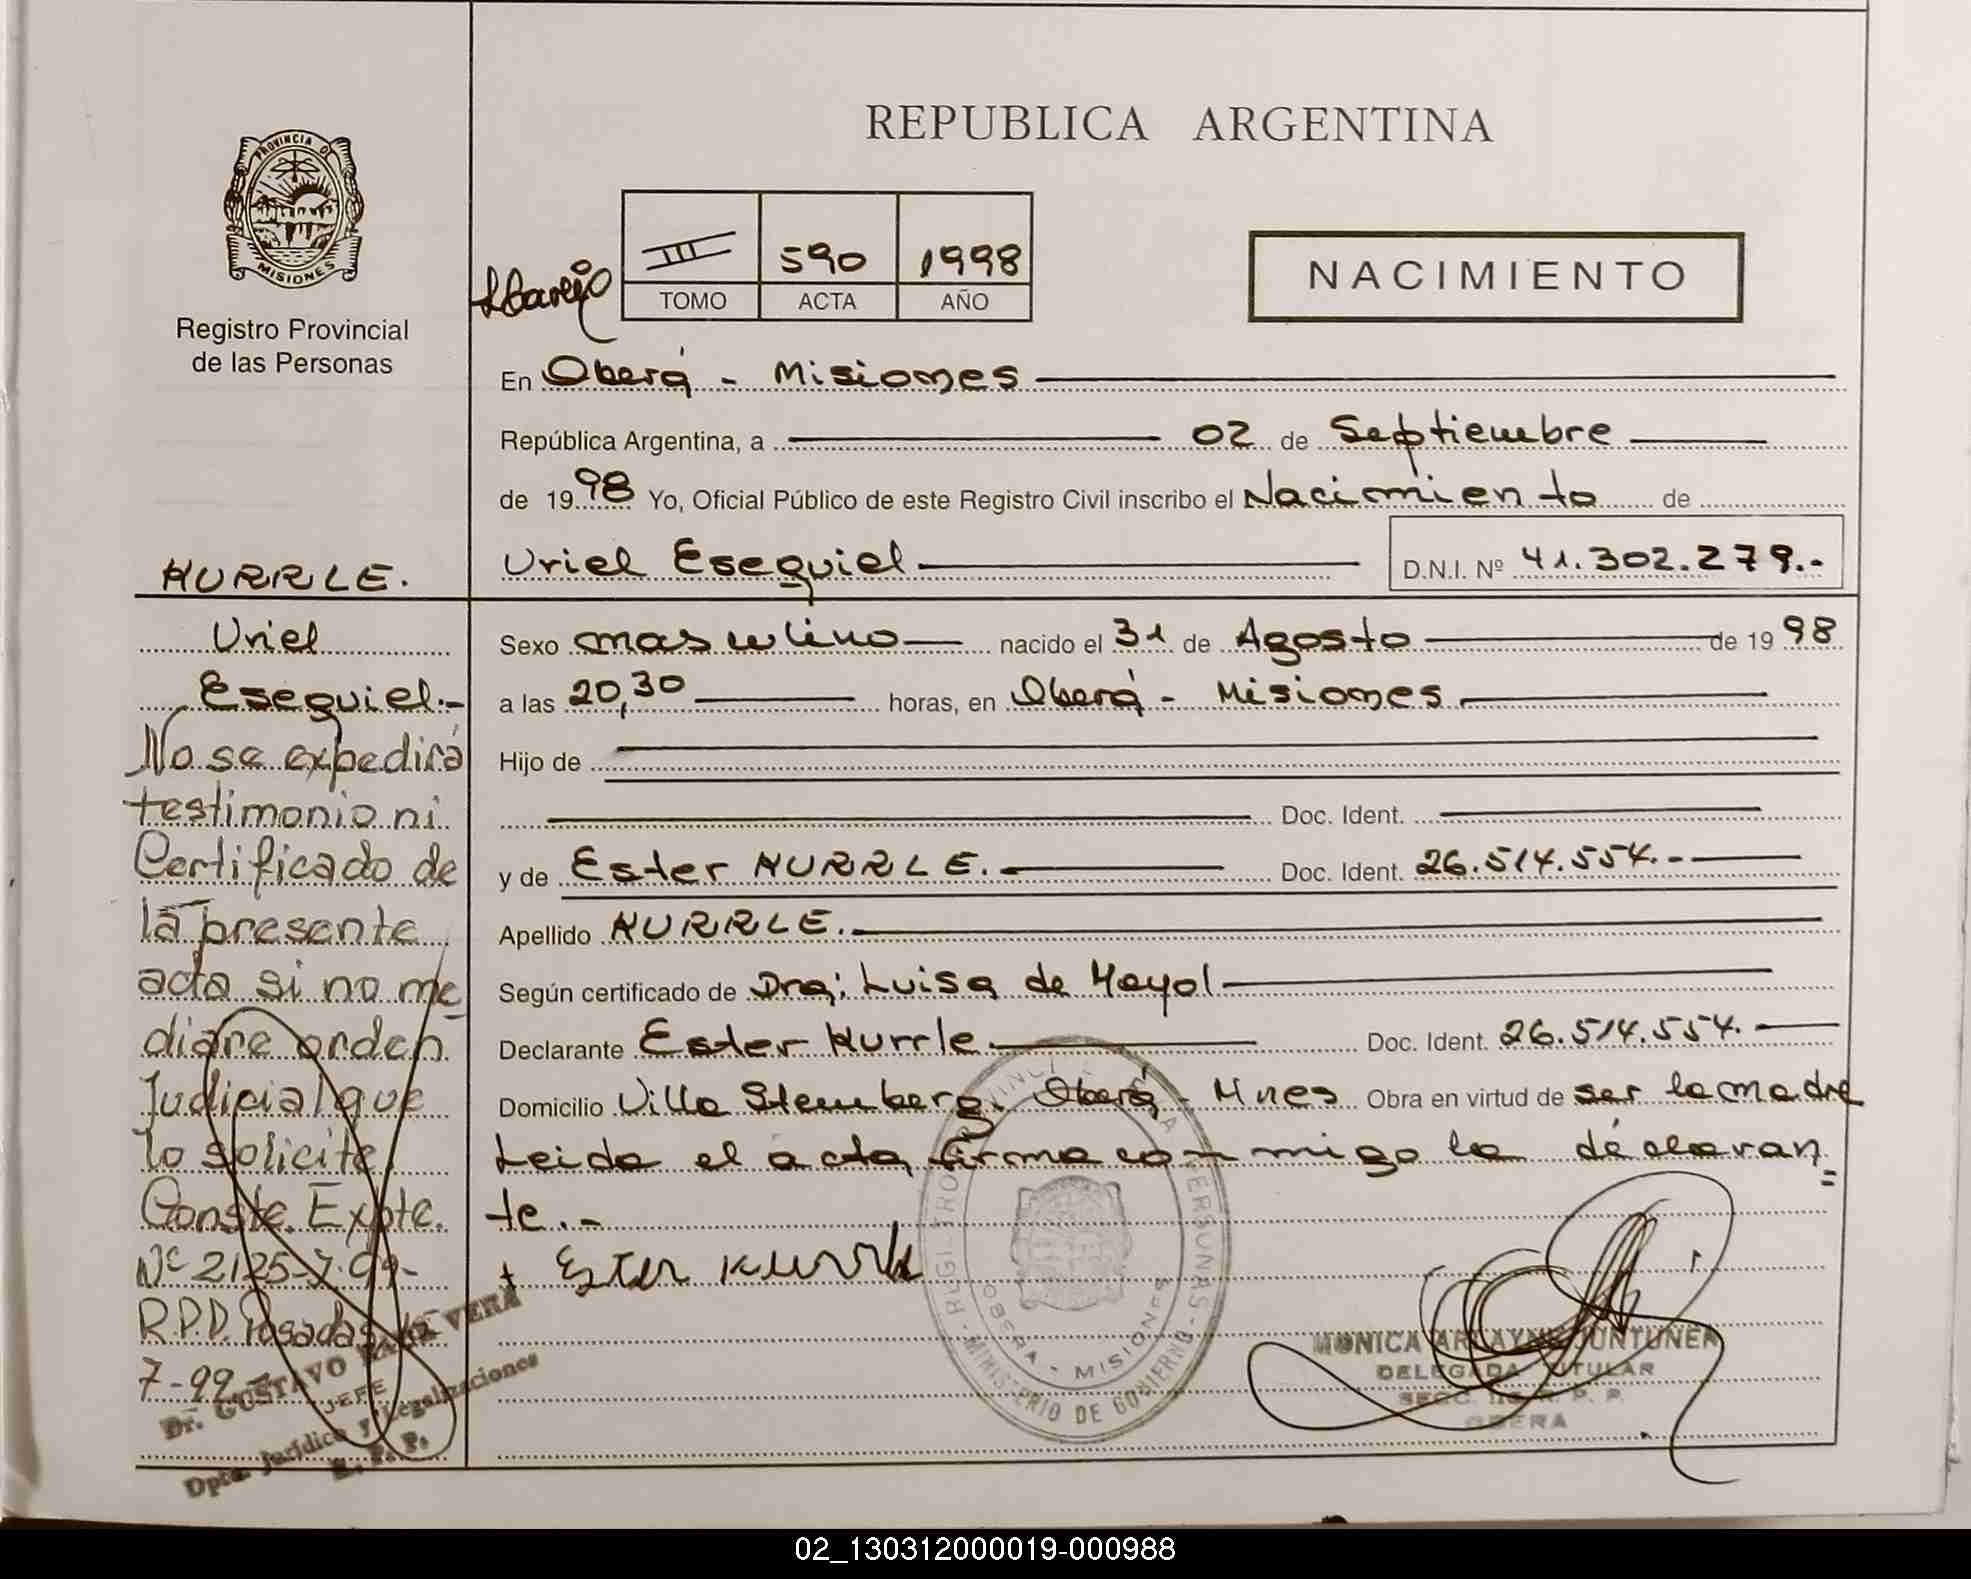 REPUBLICA ARGENTINA
PROVINCIA DE
MISIONES
Registro Provincial
de las Personas
III 590 1998
TOMO ACTA AÑO
NACIMIENTO
En Oberá - Misiones
República Argentina, a 02 de Septiembre
de 1998 Yo, Oficial Público de este Registro Civil inscribo el Nacimiento de
Uriel Esequiel D.N.I. Nº 41.302.279.-
Sexo masculino nacido el 31 de Agosto de 1998
a las 20,30 horas, en Oberá - Misiones
Hijo de
Doc. Ident.
y de Ester HURRLE. Doc. Ident. 26.514.554.-
Apellido HURRLE.
Según certificado de Dra; Luisa de Mayol
Declarante Ester Hurrle Doc. Ident. 26.514.554.
Domicilio Villa Stemberg. Oberá - Mnes Obra en virtud de ser la madre
Leida el acta, firma conmigo la declaran=
te.-
+ Ester Kurrle
HURRLE.
Uriel
Esequiel.-
No se expedirá
testimonio ni
Certificado de
la presente
acta si no me
diare orden
Judicial que
lo solicite.
Conste. Expte.
Nº 2125-7-99-
R.P.P. Posadas
7-99-
Dr. GUSTAVO VERA
JEFE
Dpto. Jurídico y Legalizaciones
R. P. P.
MINISTERIO DE GOBIERNO
OBERA - MISIONES
MONICA JUNTUNEN
DELEGADA TITULAR
OBERA
02_130312000019-000988